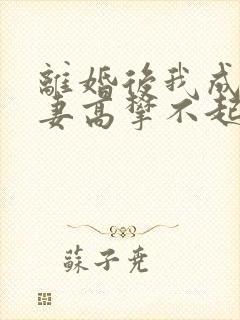 離婚後我成
妻高攀不起
蘇子堯